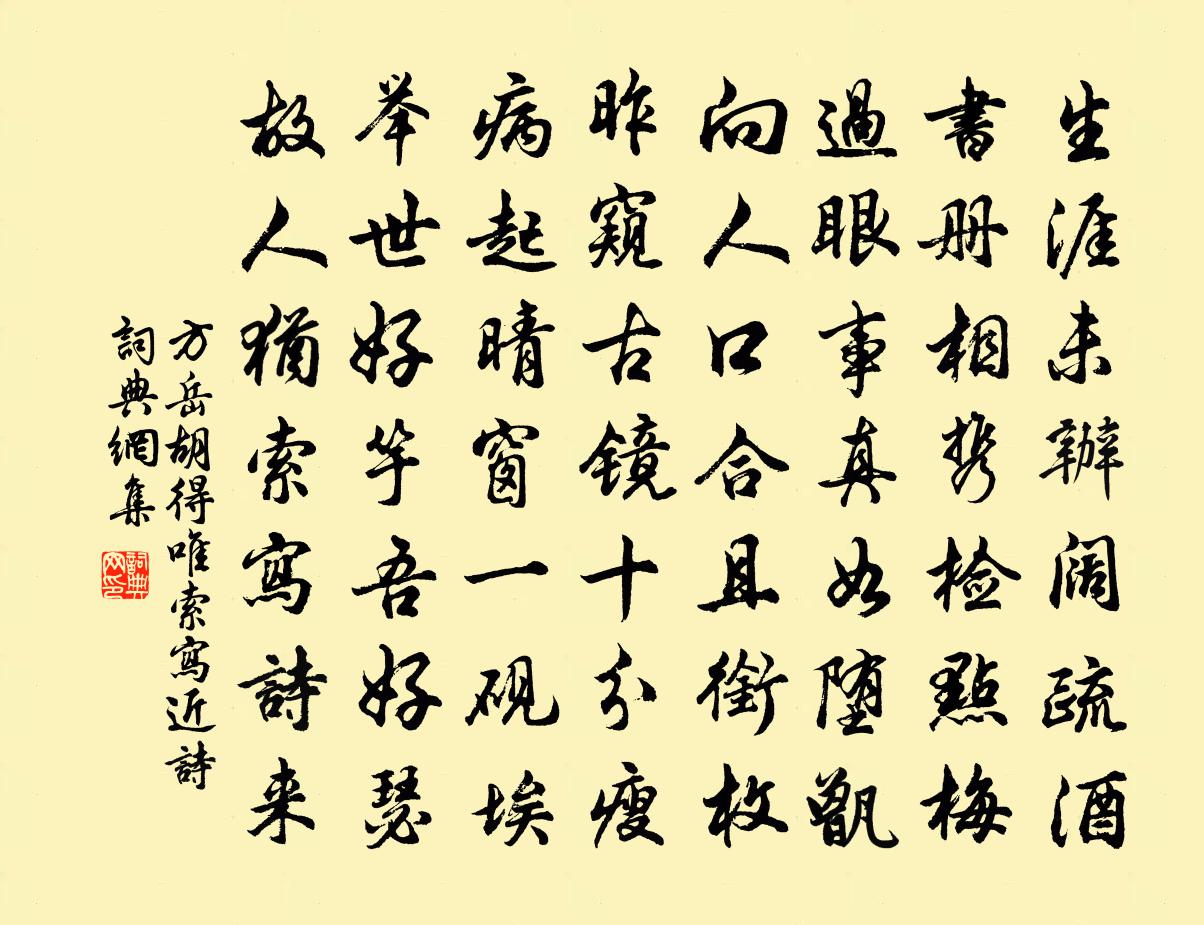 生涯未辦阔疏酒
書册相携檢點梅
過眼事真如堕甑
向人口合且銜枚
昨窺古镜十分瘦
病起晴窗一砚埃
举世好竽吾好瑟
故人猶索寫詩来
方岳胡得唯索寫近詩
詞典網集
詞典
网印